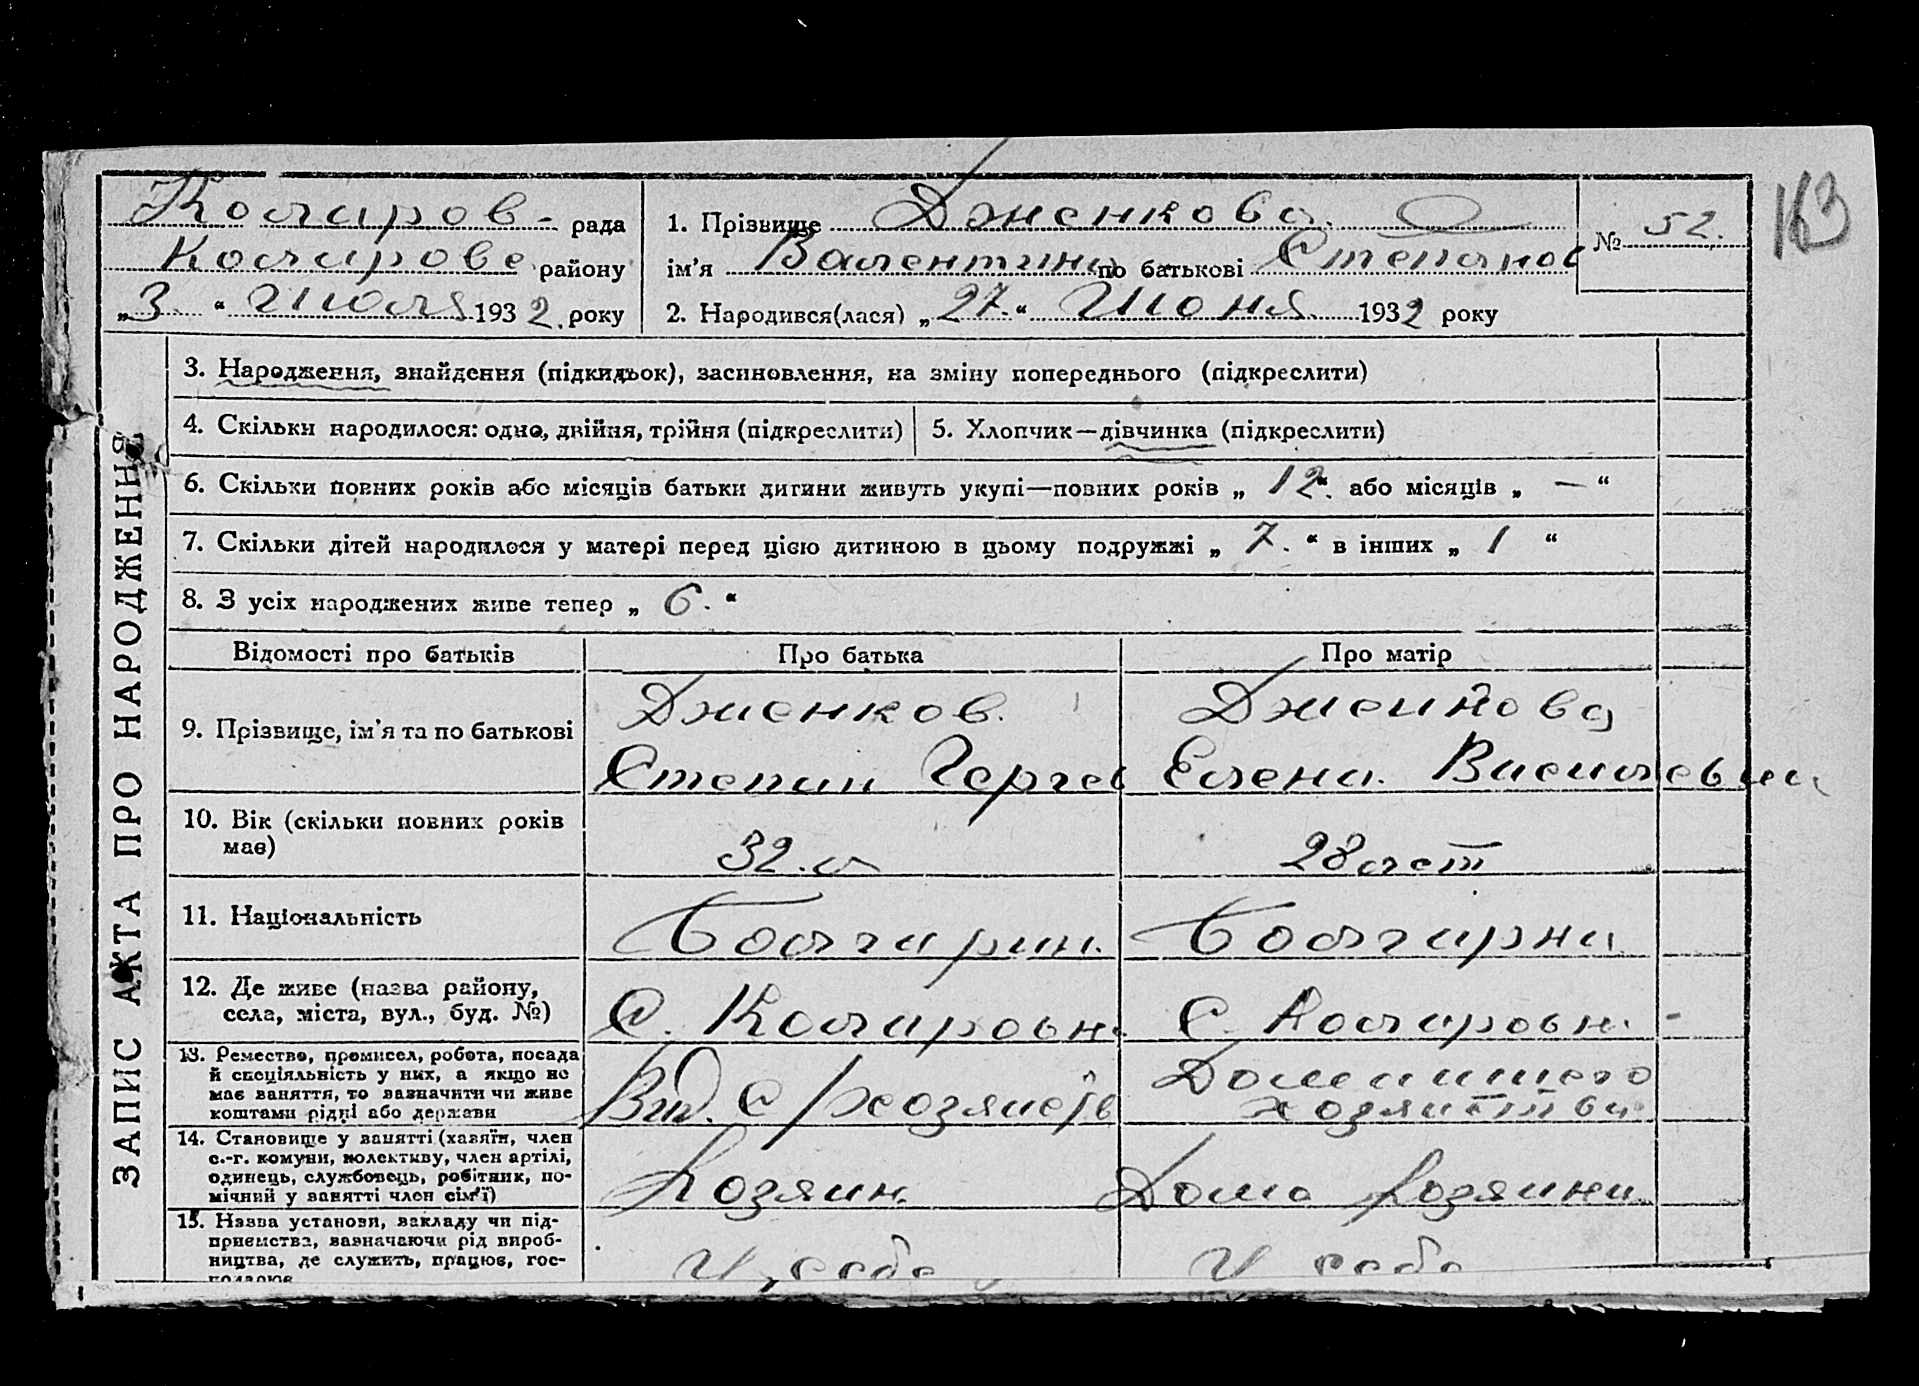 Коларов- рада
Коларовс району
„3 “ Июля 1932. року
1. Прізвище Дженкова
ім'я Валентина по батькові Степанов
2. Народився(лася) „27.“ Июня 1932 року
№ 52.
163
ЗАПИС АКТА ПРО НАРОДЖЕННЯ
3. Народження, знайдення (підкидьок), засиновлення, на зміну попереднього (підкреслити)
4. Скільки народилося: одно, двійня, трійня (підкреслити)
5. Хлопчик—дівчинка (підкреслити)
6. Скільки повних років або місяців батьки дитини живуть укупі—повних років „ 12.“ або місяців „ — “
7. Скільки дітей народилося у матері перед цією дитиною в цьому подружжі „ 7. “ в інших „ 1 “
8. З усіх народжених живе тепер „ 6. “
Відомості про батьків
Про батька
Про матір
9. Прізвище, ім'я та по батькові
Дженков.
Степан Горгев
Дженкова
Елена. Васильевна
10. Вік (скільки повних років
має)
32. л
28 лет
11. Національність
Болгарин.
Болгарка
12. Де живе (назва району,
села, міста, вул., буд. №)
С. Коларовк.
С. Коларовк.
13. Ремество, промисел, робота, посада
й спеціяльність у них, а якщо не
має заняття, то зазначити чи живе
коштами рідні або держави
С
Домашнего
хозяйства
14. Становище у занятті (хазяїн, член
с.-г. комуни, колективу, член артілі,
одинець, службовець, робітник, по-
мічний у занятті член сім'ї)
Хозяин.
Домо Хозяйка
15. Назва установи, закладу чи під-
приємства, зазначаючи рід вироб-
ництва, де служить, працює, гос-
подарює
У себе
У себе